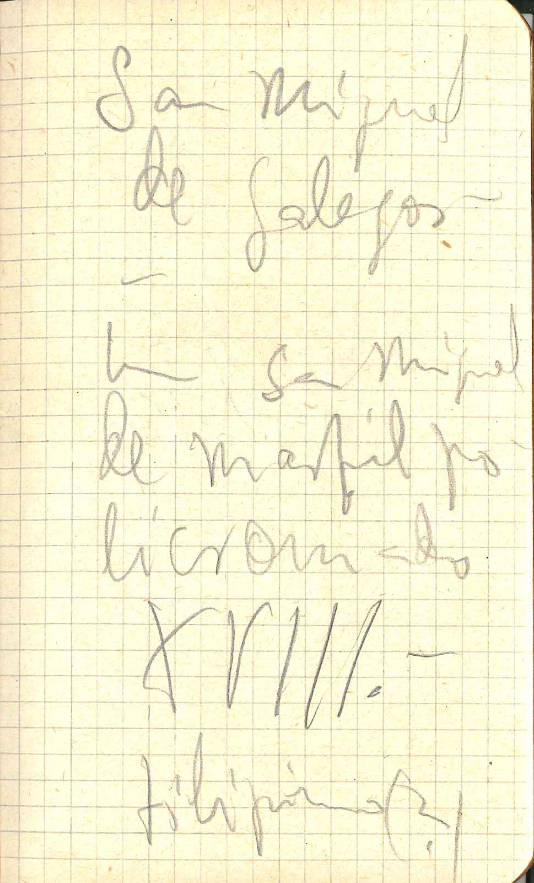 San Miguel
de Galegos
-
un San Miguel
de marfil po-
licromado
XVIII.-
filipino (?)